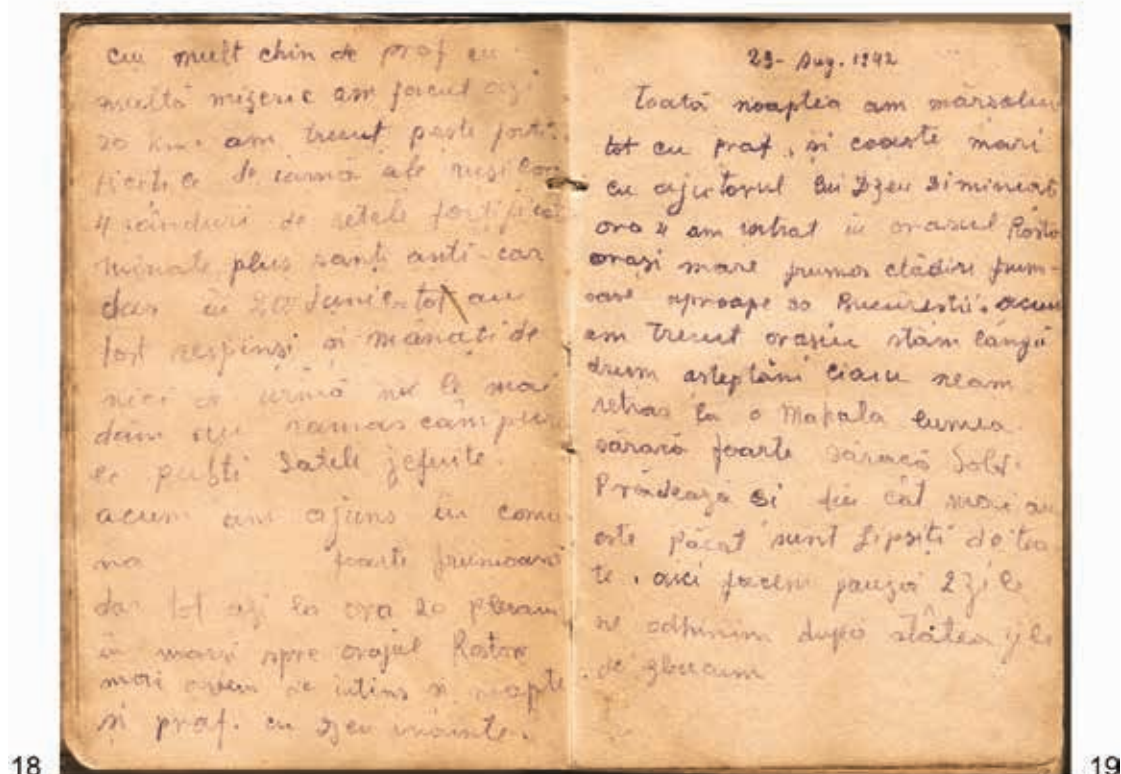 cu mult chin de praf cu
multă mizerie am facut azi
20 km. am trecut peste forti-
de iarnă ale rusilor
4 rânduri de retele fortificat
minate plus santi anti-car
dar in Iunie tot au
fost respinsi si mânați de
nici o urmă nu le mai
dăm au ramas câmpuri
le pusti Satele jefuite.
acum am ajuns in comu-
na foarte frumoasă
dar tot azi la ora 20 plecam
in mars spre orașul Rostov
mai avem de intins si noapte
si praf. cu Dzeu inainte.
29- Aug. 1942
Toată noaptea am mărsaluit
tot cu praf, si coaste mari
cu ajutorul lui Dzeu Dimineat
ora 4 am intrat in orasul Rosto
orasi mare frumos clădiri frum-
oase aproape ca Bucuresti. acum
am trecut orasiu stăm lângă
drum asteptăm ciaiu neam
retras la o Mahala lumea
săracă foarte săracă Sold.
Prădează si fie cât mai au
este păcat sunt Lipsiți de toa
te. aici facem pauză 2 zile
ne odhinim după atâtea zile
de zbucium
18
19